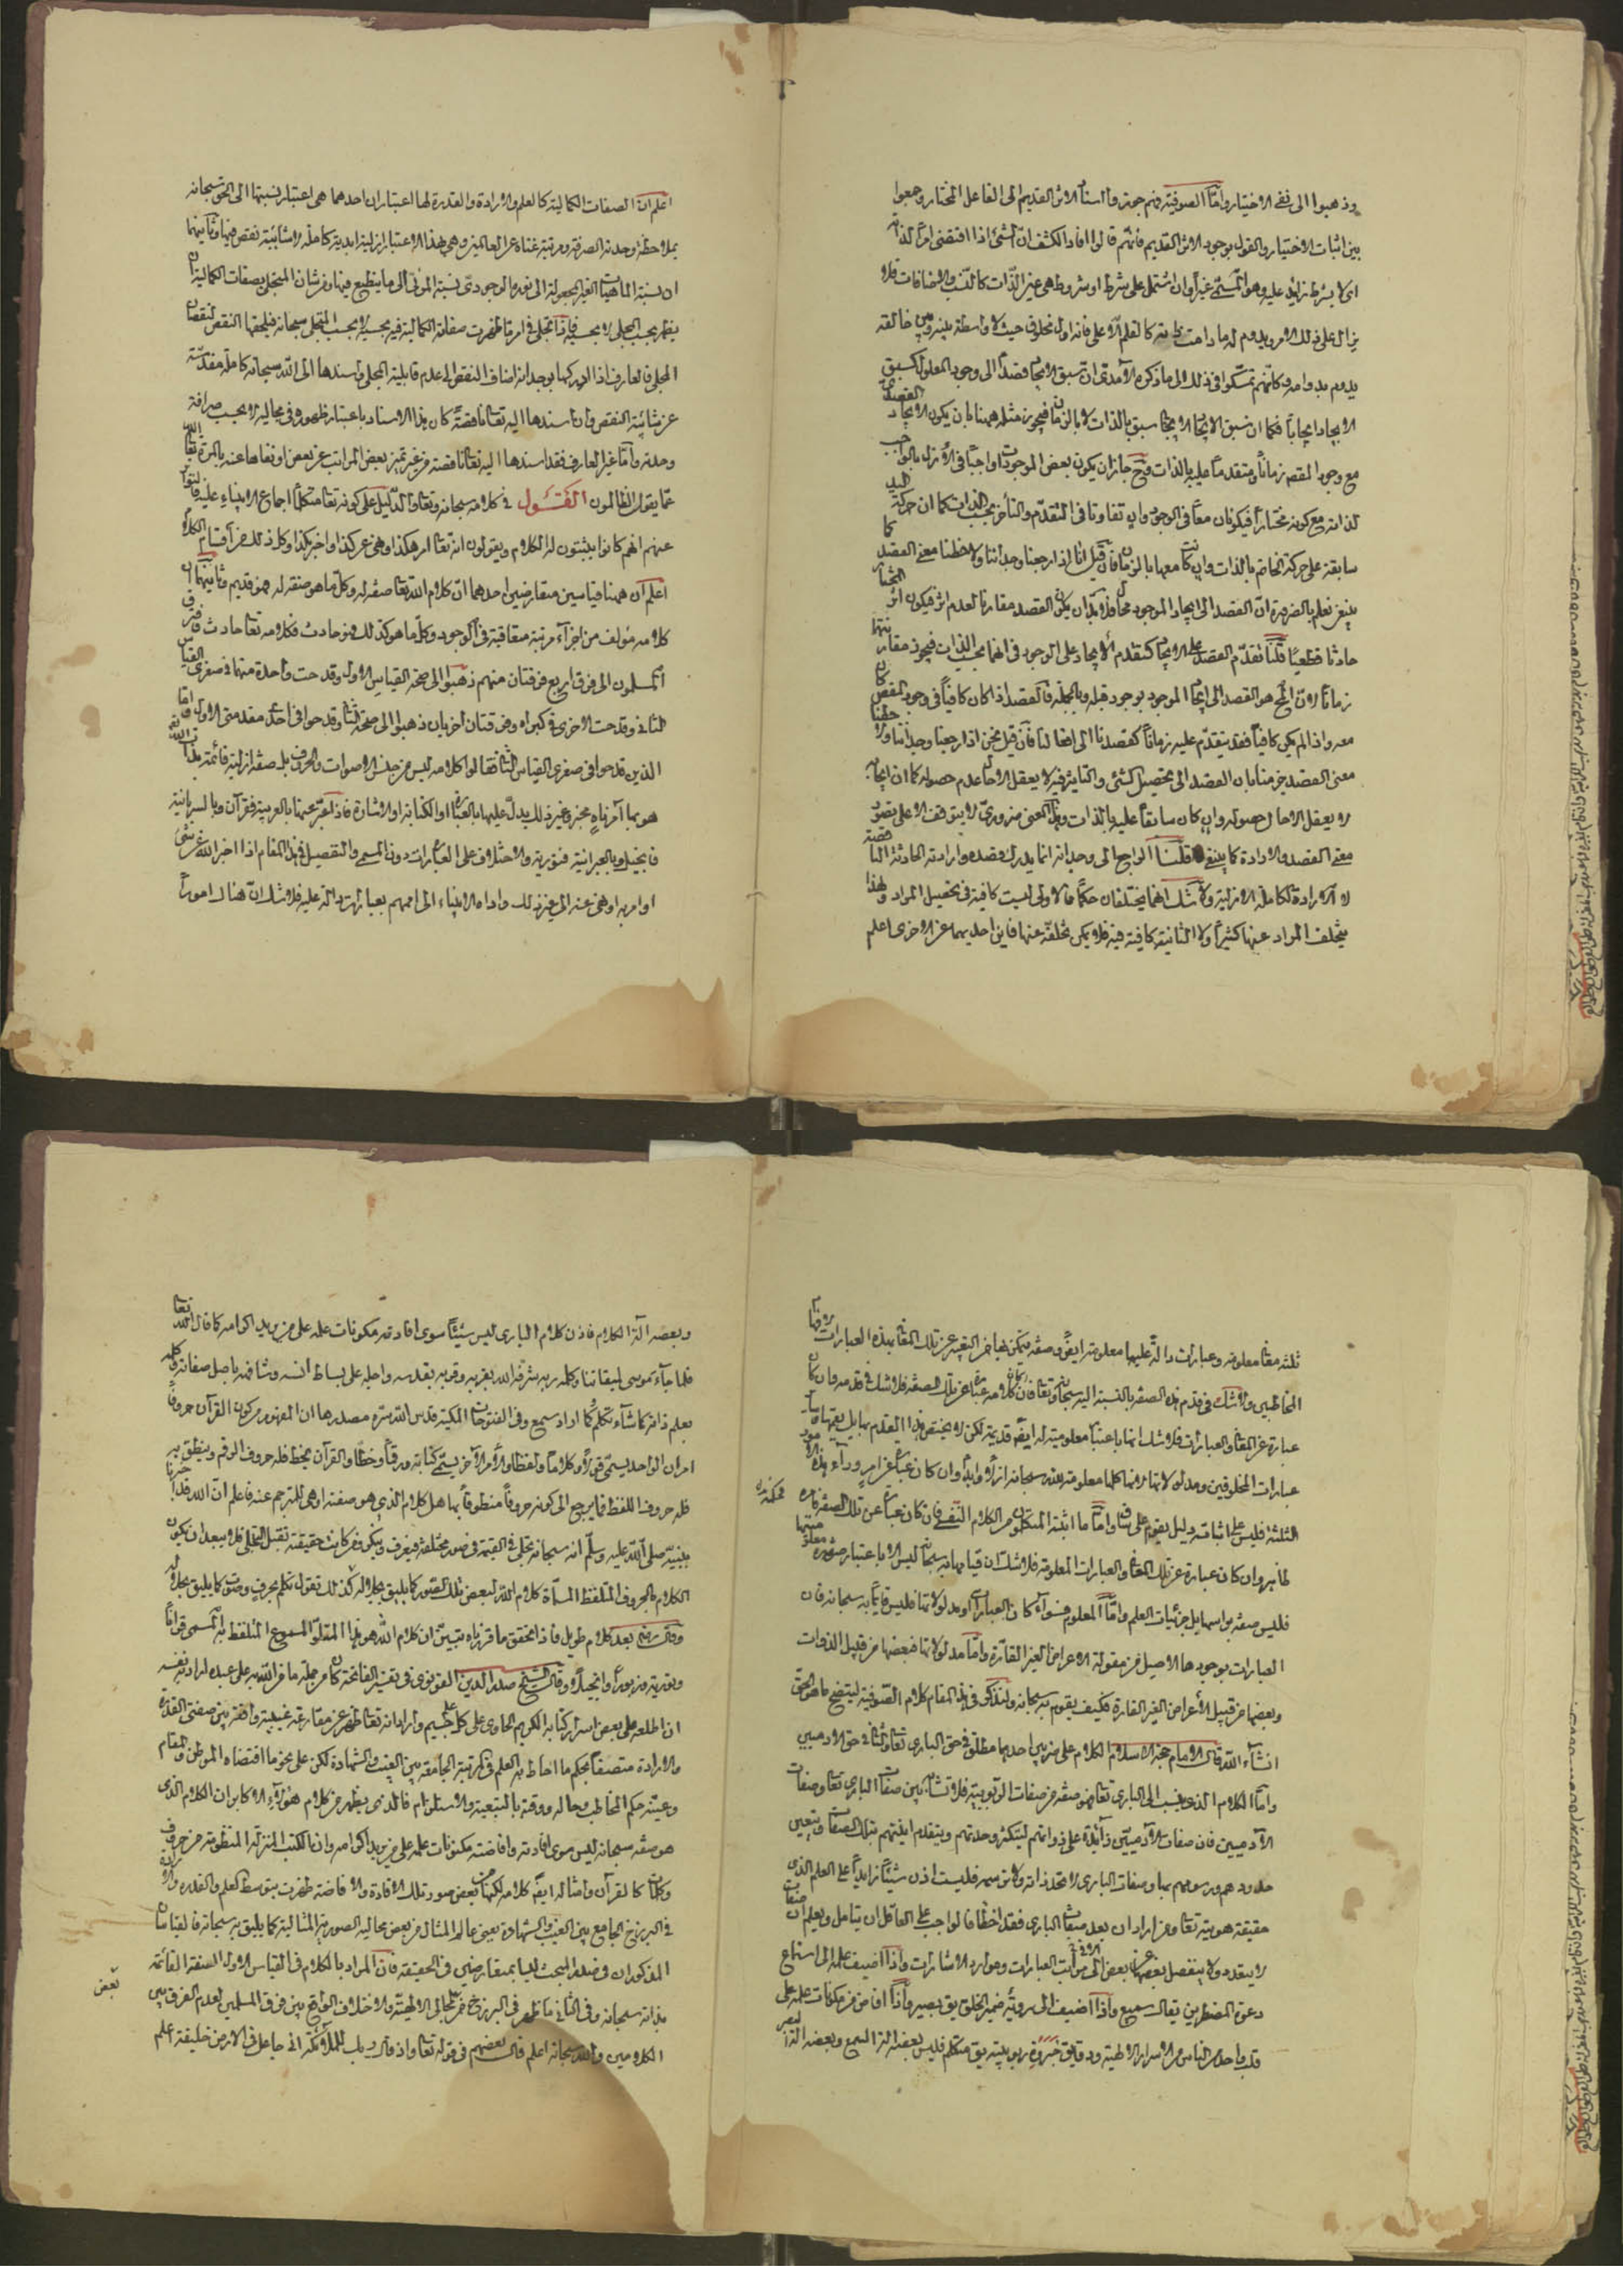 وذهبوا الى نفى الاختيار واما الصوفية فهم جوزوا استناد الاثر القديم الى الفاعل المختار وجمعوا
بين اثبات الاختيار والقول بوجود الاثر القديم فانهم قالوا افاد الكشف ان الشئ اذا اقتضى امرا لذاته
اى لا بشرط زايد عليه وهو المسمى غيرا وان اشتمل على شرط او شروط هى عين الذات كالنسب والاضافات فلا
يزال على ذلك الامر ويدوم له ما دامت ذاته كالقلم الاعلى فانه اول مخلوق حيث لا واسطة بينه وبين خالقه
يدوم بدوامه وكانهم تمسكوا فى ذلك الى ما ذكره الآمدى ان سبق الايجاد قصدا الى وجود المعلول كسبق
الايجاد ايجابا فكما ان سبق الايجاد الايجابى سبق بالذات لا بالزمان فيجوز مثله ههنا بان يكون الايجاد القصدى
مع وجود المقصود زمانا ومتقدما عليه بالذات وح جاز ان يكون بعض الموجودات واجبا فى الازل بالواجب
لذاته مع كونه مختارا فيكونان معا فى الوجود وان تفاوتا فى التقدم والتأخر بحسب الذات كما ان حركة اليد
سابقة على حركة الخاتم بالذات وان كانت معها بالزمان فان قيل انا اذا راجعنا وجداننا ولاحظنا معنى القصد كما
ينبغى نعلم بالضرورة ان القصد الى ايجاد الموجود محال فلا بد ان يكون القصد مقارنا لعدم الاثر فيكون اثر المختار
حادثا قطعيا قلنا تقدم القصد على الايجاد كتقدم الايجاد على الوجود فى انهما بحسب الذات فيجوز مقارنتهما
زمانا لان المحال هو القصد الى ايجاد الموجود بوجود قبله وبالجملة فالقصد اذا كان كافيا فى وجود المقصود كان
معه واذا لم يكن كافيا فقد يتقدم عليه زمانا كقصدنا الى افعالنا فان قيل نحن اذا راجعنا وجداننا ولاحظنا
معنى القصد جزمنا بان القصد الى تحصيل الشئ والتاثير فيه لا يعقل الا حال عدم حصوله كما ان ايجابه
لا يعقل الا حال حصوله وان كان سابقا عليه بالذات وهذا المعنى ضرورى لا يتوقف الا على تصور
معنى القصد والارادة كما ينبغى قلنا الراجع الى وجدانه انما يدرك قصده وارادته الحادثة الناقصة
لا الارادة الكاملة الازلية ولا شك انهما يختلفان حكما فالاولى ليست كافية فى تحصيل المراد ولهذا
يتخلف المراد عنها كثيرا والثانية كافية فيه فلا يمكن تخلفه عنها فاين احديهما عن الاخرى اعلم
اعلم ان الصفات الكمالية كالعلم والارادة والقدرة لها اعتباران احدهما هى اعتبار نسبتها الى الحق سبحانه
بملاحظة وحدته الصرفة ومرتبة غناه عن العالمين وهى بهذا الاعتبار ازلية ابدية كاملة لا شائبة نقص فيها وثانيهما
ان نسبة الماهيات الغير المجعولة الى نوره الوجودى نسبة المرائى الى ما ينطبع فيها ومن شان المتجلى بصفات الكمالية ان
يظهر بحسب المجلى لا بحسبه فاذا تجلى فى امر ما ظهرت صفاته الكمالية فيه بحسبه لا بحسب المتجلى سبحانه فيلحقها النقص لنقصان
المجلى فالعارف اذا ادركها بوجدانه اضاف النقص الى عدم قابلية المجلى واسندها الى الله سبحانه كاملة مقدسة
عن شائبة النقص وان اسندها اليه تعا ناقصة كان هذا الاسناد باعتبار ظهوره فى مجاليه لا بحسب صرافة
وحدته واما غير العارف فقد اسندها اليه تعا ناقصة من غير تمييز بعض المراتب عن بعض او نفاها عنه بالمرة تعا الله
عما يقول الظالمون القول فى كلامه سبحانه وتعا والدليل على كونه تعا متكلما اجماع الانبياء عليه فانه تواتر
عنهم انهم كانوا يثبتون له الكلام ويقولون انه تعا امر بكذا ونهى عن كذا واخبر بكذا وكل ذلك من اقسام الكلام
اعلم ان ههنا قياسين متعارضين احدهما ان كلام الله تعا صفة له وكل ما هو صفة له فهو قديم وثانيهما ان
كلامه مؤلف من اجزاء مرتبة متعاقبة فى الوجود وكل ما هو كذلك فهو حادث فكلامه تعا حادث فافترق
المسلمون الى فرق اربع فرقتان منهم ذهبوا الى صحة القياس الاول وقدحت واحدة منهما فى صغرى القياس
الثانى وقدحت الاخرى فى كبراه وفرقتان اخريان ذهبوا الى صحة الثانى وقدحوا فى احدى مقدمتى الاول
الذين قدحوا فى صغرى القياس الثانى فقالوا كلامه ليس من جنس الاصوات والحروف بل صفة ازلية قائمة بذات الله
هو بها آمر ناه مخبر وغير ذلك يدل عليها بالعبارة او الكتابة او الاشارة فاذا عبر عنها بالعربية فقرآن وبالسريانية
فانجيل وبالعبرانية فتورية والاختلاف على العبارات دون المسمى والتفصيل فى هذا المقام اذا اخبر الله عن شئ
او امر به او نهى عنه الى غير ذلك واداه الانبياء الى اممهم بعبارات دالة عليه فلا شك ان هناك امورا
ثلثة معانى معلومة وعبارات دالة عليها معلومة ايضا وصفة يتمكن بها من التعبير عن تلك المعانى بهذه العبارات لافهام
المخاطبين ولا شك فى قدم هذه الصفة بالنسبة اليه سبحانه وتعا فان كان كلامه عبارة عن تلك الصفة فلا شك فى قدمه وان كان
عبارة عن المعانى والعبارات فلا شك انها باعتبار معلوميتها له ايضا قديمة لكن لا يختص هذا القدم بها بل يعمها وسائر
عبارات المخلوقين ومدلولاتها لانها كلها معلومة لله سبحانه ازلا وابدا وان كان عبارة عن امر وراء هذه الامور
الثلثة فليس على اثباته دليل يقوم على ساق واما ما اثبته المتكلمون من الكلام النفسى فان كان عبارة عن تلك الصفة فحكمه
ظاهر وان كان عبارة عن تلك المعانى والعبارات المعلومة فلا شك ان قيامها به سبحانه ليس الا باعتبار صورة معلوميتها
فليس صفة براسها بل جزئيات العلم واما المعلوم فسواء كان العبارات او مدلولاتها فليس قائما به سبحانه فان
العبارات بوجودها الاصيل من مقولة الاعراض الغير القارة واما مدلولاتها فبعضها من قبيل الذوات
وبعضها من قبيل الاعراض الغير القارة فكيف يقوم به سبحانه ولنذكر فى هذا المقام كلام الصوفية ليتضح ما هو الحق
انشاء الله قال الامام حجة الاسلام الكلام على ضربين احدهما مطلق فى حق البارى تعا والثانى فى حق الادميين
واما الكلام الذى ينسب الى البارى تعا فهو صفة من صفات الربوبية فلا تشابه بين صفات البارى تعا وصفات
الآدميين فان صفات الآدميين زائدة على ذواتهم ليتكثر وحدتهم ويتقدم انيتهم بتلك الصفات ويتعين
حدودهم ورسومهم بها وصفات البارى لا تحد ذاته ولا ترسمه فليست اذن شيئا زايدا على العلم الذى
حقيقة هويته تعا ومن اراد ان يعد صفات البارى فقد اخطأ فالواجب على العاقل ان يتامل ويعلم ان صفات
لا يتعدد ولا ينفصل بعضها عن بعض الا فى مراتب العبارات وموارد الاشارات واذا اضيف علمه الى استماع
دعوة المضطرين يقال سميع واذا اضيف الى روية ضمير الخلق يق بصير واذا افاض من مكنونات علمه على
قلب واحد من الناس من الاسرار الالهية ودقايق جبروت ربوبيته يق متكلم فليس بعضه آلة السمع وبعضه آلة البصر
وبعضه آلة الكلام فاذن كلام البارى ليس شيئا سوى افادته مكنونات علمه على من يريد اكرامه كما قال الله تعا
فلما جاء موسى لميقاتنا وكلمه ربه شرفه الله بقربه وقربه بقدسه واجلسه على بساط انسه وشافهه باجل صفاته وكلمه
بعلم ذاته كما شاء تكلم كما اراد سمع وفى الفتوحات المكية قدس الله سره مصدرها ان المفهوم من كون القرآن حروفا
امران الواحد يسمى قولا وكلاما ولفظا والامر الآخر يسمى كتابة ورقما وخطا والقرآن يخط فله حروف الرقم وينطق به
فله حروف اللفظ فلما يرجع الى كونه حروفا منطوقا بها هل كلام الذى هو صفته او هى للمترجم عنه فاعلم ان الله قد اخبرنا
بنبيه صلى الله عليه وسلم انه سبحانه يتجلى فى القيمة فى صور مختلفة فيعرف وينكر ومن كانت حقيقته تقبل التجلى فلا يبعد ان يكون
الكلام بالحروف المتلفظ المسماة كلام الله لبعض تلك الصور كما يليق بجلاله كذلك نقول تكلم بحرف وصوت كما يليق بجلاله
وقال رضى بعد كلام طويل فاذا تحقق ما قررناه يتبين ان كلام الله هو هذا المتلو المسموع المتلفظ به المسمى قرآنا
وتورية وزبورا وانجيلا وقال الشيخ صدر الدين القونوى فى تفسير الفاتحة كان من جملة ما من الله به على عبده
ان اطلعه على بعض اسرار كتابه الكريم الحاوى على كل علم جسيم واراه انه تعا ظهر عن مقارعة غيبية واقعة بين صفتى القدرة
والارادة متصفا بحكم ما احاط به العلم فى المرتبة الجامعة بين الغيب والشهادة لكن على نحو ما اقتضاه الموطن والمقام
وعينه حكم المخاطب وحاله ووقته بالتبعية والاستلزام فالذى يظهر من كلام هؤلاء الاكابر ان الكلام الذى
هو صفة سبحانه ليس سوى افادته وافاضته مكنونات علمه على من يريد اكرامه وان الكتب المنزلة المنظومة من حروف
وكلمات كالقرآن وامثاله ايضا كلامه لكنها من بعض صور تلك الافادة والافاضة ظهرت بتوسط العلم والقدرة والارادة
فى البرزخ الجامع بين الغيب والشهادة يعنى عالم المثال من بعض مجاليه الصورية المثالية كما يليق به سبحانه فالقياسان
المذكوران فى صدر المبحث ليسا بمتعارضين فى الحقيقة فان المراد بالكلام فى القياس الاول الصفة القائمة
بذاته سبحانه وفى الثانى ما ظهر فى البرزخ من بعض المجالى الالهية والاختلاف الواقع بين فرق المسلمين لعدم الفرق بين
الكلامين والله سبحانه اعلم قال بعضهم فى قوله تعا واذ قال ربك للملائكة انى جاعل فى الارض خليفة اعلم